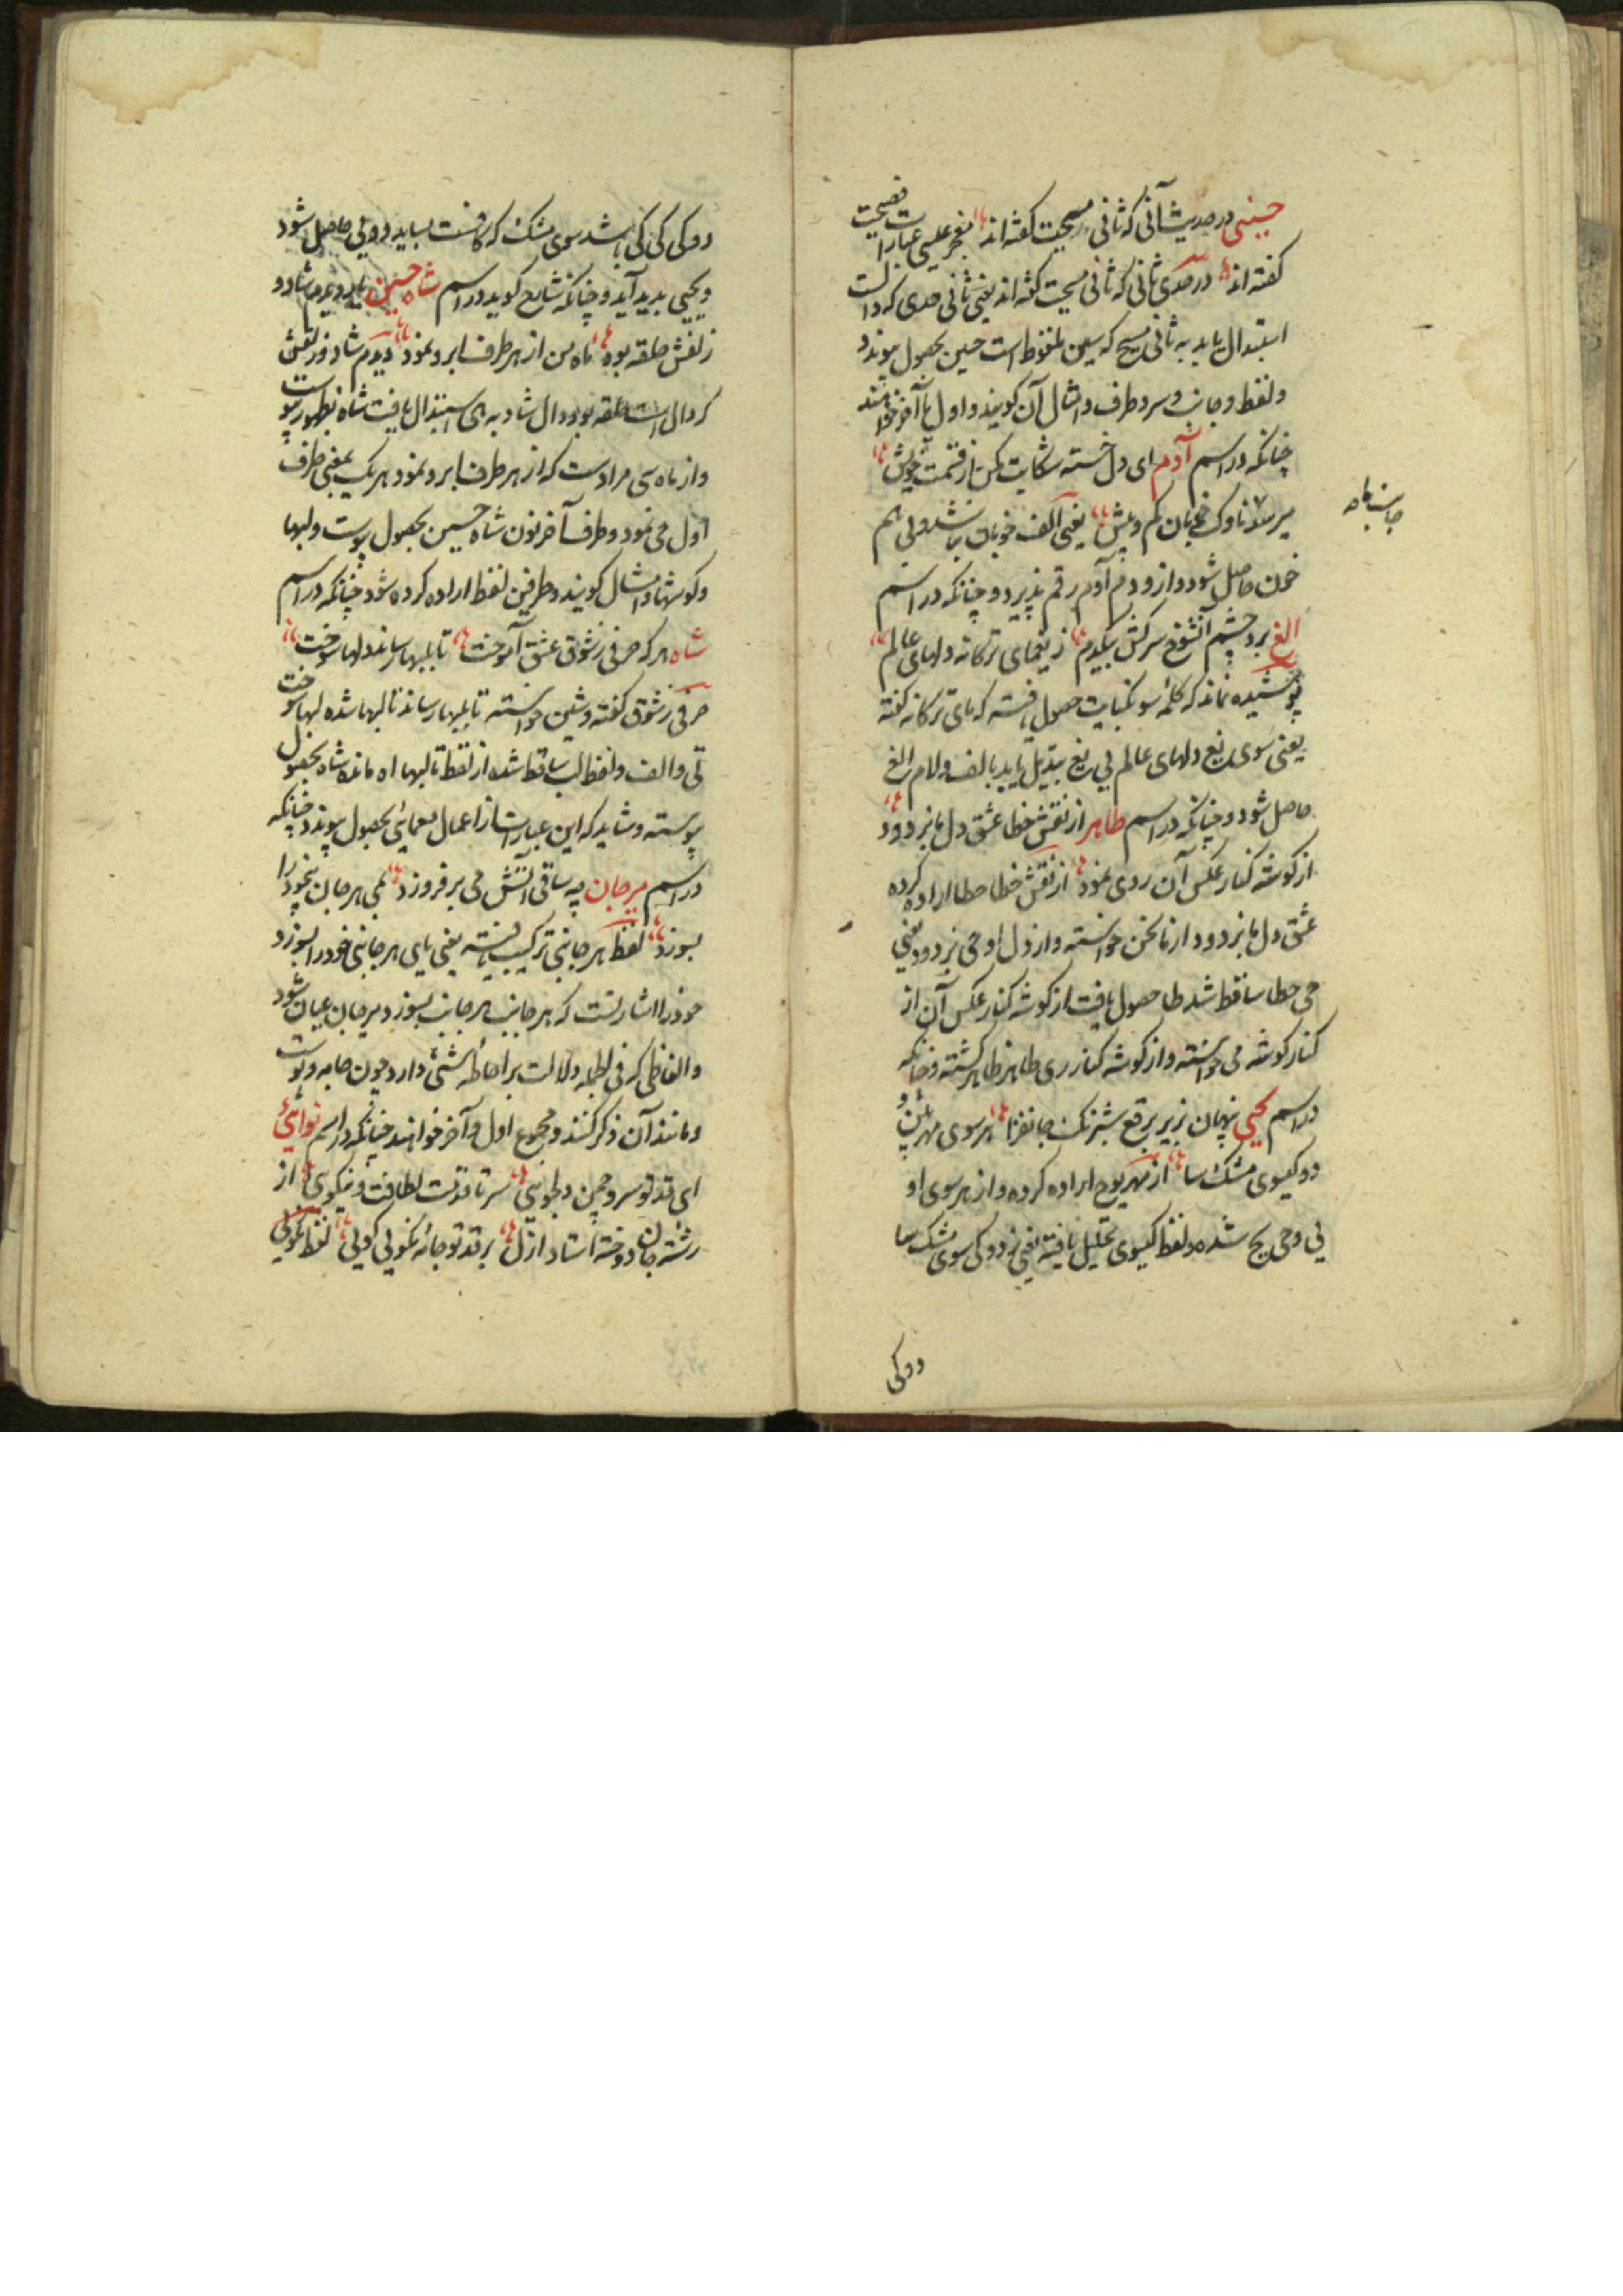 حسینی در حدیث آنی که ثانی مسیحت گفته اند معجز عیسی عبارات فصیحت
گفته اند در صدی ثانی که ثانی مسیحت گفته اند یعنی ثانی صدی که دال است
استبدال یابد به ثانی مسیح که سین ملفوظ است حسین بحصول پیوندد
و لفظ و جانب و سر و طرف و امثال آن گویند و اول یا آخر خواهند
چنانکه در اسم آدم ای دل خسته شکایت مکن از قسمت خویش
میرسد ناوک خوبان کم و بیش یعنی الف خوبان
حاصل شود و از و دم آدم رقم پذیرد و چنانکه در اسم
الغ برد چشم آنشوخ سرکش بیکدم ز یغمای ترکانه دلهای عالم
پوشیده نماند که کلمه سو حصول یافته که بای ترکانه گفته
یعنی سوی یغ دلهای عالم بی یغ تبدیل یابد بالف و لام الغ
حاصل شود و چنانکه در اسم طاهر از نقش خطا عشق دل ما بزدود
از گوشه کنار عکس آن روی نمود از نقش خطا حطا اراده کرده
عشق دل ما بزدود از ما نحن خواسته و از دل او حی بزدود یعنی
حی حطا ساقط شد طا حصول یافت از گوشه کنار عکس آن از
کنار گوشه می خواسته و از گوشه کنار ری طاهر ظاهر گشته و چنانکه
در اسم یحیی پنهان بزیر برقع شبرنگ جانفزا هر سوی مهر بین و
دو گیسوی مشک سا از مهر یوح اراده کرده و از هر سوی او
یی و حی یح شده و لفظ گیسوی تحلیل یافته یعنی دو کی سوی مشک سا
دو کی
دو کی کی کی باشد سوی مشک که کافست بساید دویی حاصل شود
و یحیی پدید آید و چنانکه شایع گوید در اسم شاه حسین دیدم شاد و
زلفش حلقه بود ماه من از هر طرف ابرو نمود دیدم شاد و زلفش
که دال است حلقه بود دال شاد به های استبدال یافت شاه بظهور پیوست
و از ماه سی مرادست که از هر طرف ابرو نمود هر یک بمعنی طرف
اول حی نمود و طرف آخر نون شاه حسین بحصول پیوست و لبها
و گوشها و امثال گویند و طرفین لفظ اراده کرده شود چنانکه در اسم
شاه هر که حرفی ز شوق عشق آموخت تا بلبها رساند دلها سوخت
حرفی ز شوق گفته و شین خواسته تا بلبها رساند تا لبها شده لبها سوخت
تی و الف و لفظ لب ساقط شده از لفظ تا لبها اه مانده شاه بحصول
پیوسته و شاید که این عبارات از اعمال معمائی بحصول پیوندد چنانکه
در اسم میر جان چه ساقی آتش می بر فروزد بمی هر جان بخود را
بسوزد لفظ هر جانبی ترکیب یافته یعنی یای هر جانبی خود را بسوزد
خود را اشارتست که هر جانب هر جانب بسوزد میر جان عیان شود
و الفاظی که فی الجمله دلالت بر احاطه شئی دارد چون جامه و پوست
و مانند آن ذکر کنند و مجموع اول و آخر خواهند چنانکه در اسم نوایی
ای قد تو سرو چمن دلجویی سر تا قدمت لطافت و نیکویی از
رشته جان دوخته استاد ازل بر قد تو جامه نکویی گویی لفظ نکویی